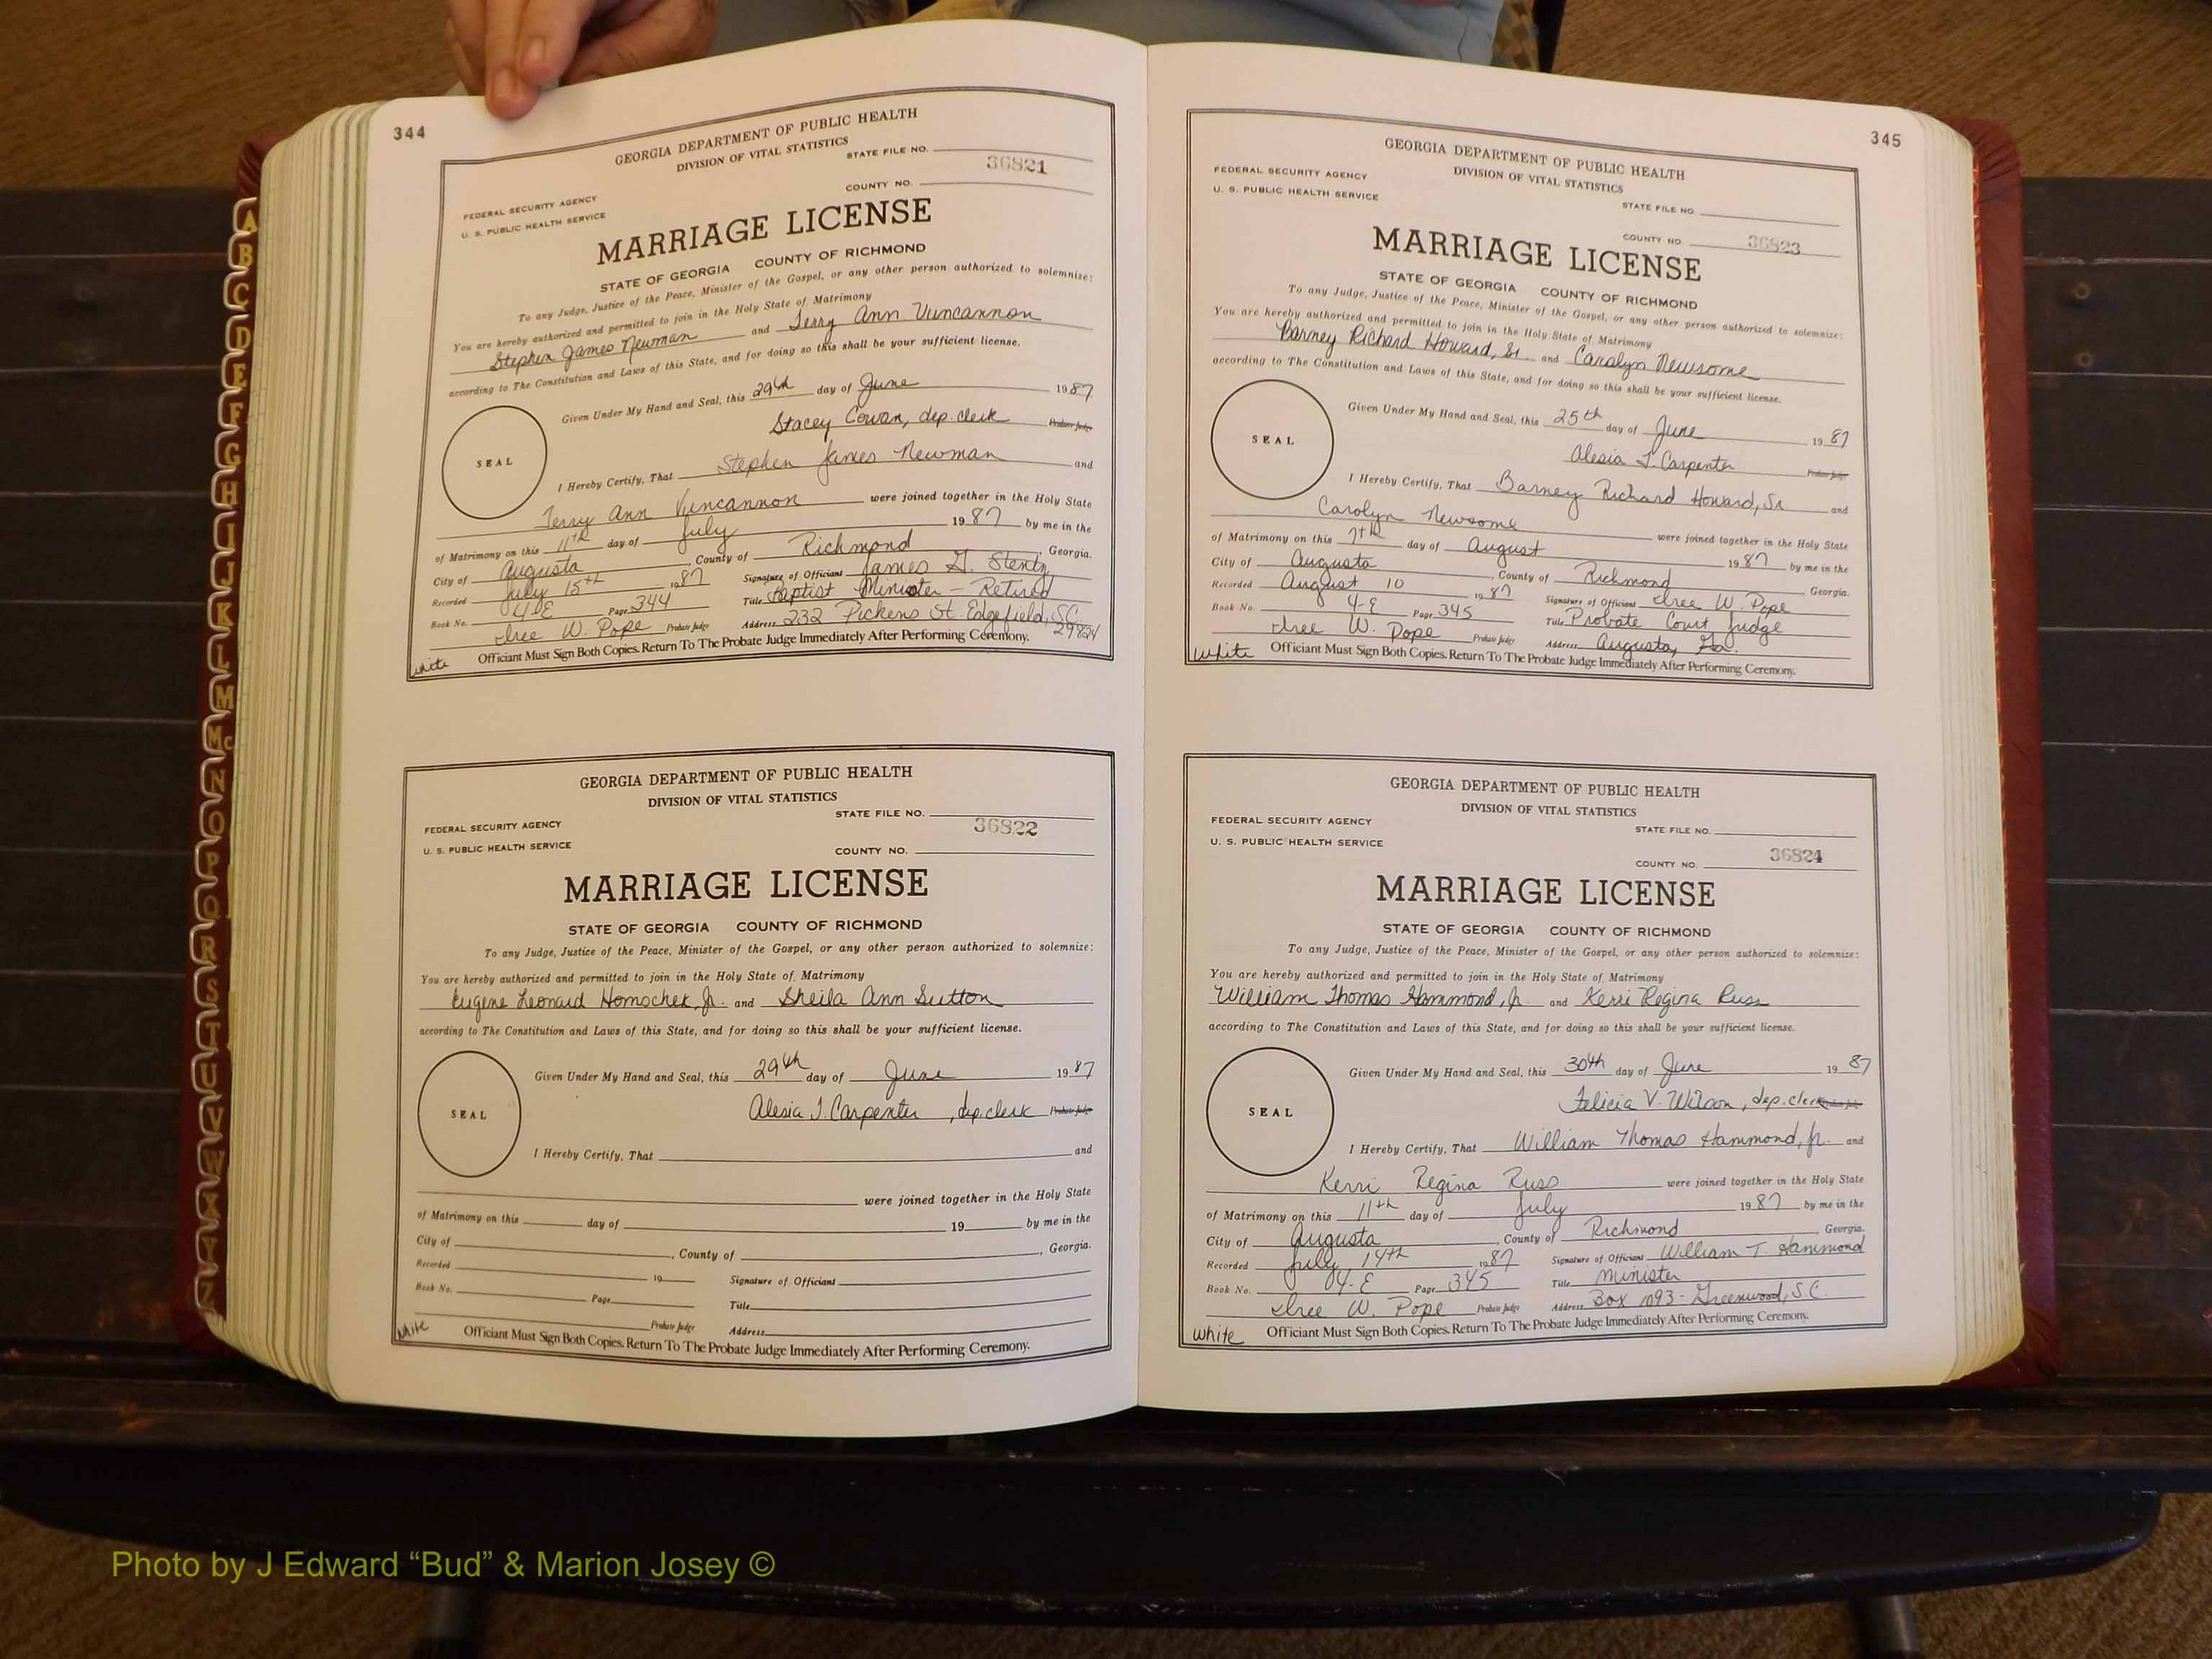 344
GEORGIA DEPARTMENT OF PUBLIC HEALTH
DIVISION OF VITAL STATISTICS
STATE FILE NO. 36821
FEDERAL SECURITY AGENCY
COUNTY NO.
U. S. PUBLIC HEALTH SERVICE
MARRIAGE LICENSE
STATE OF GEORGIA COUNTY OF RICHMOND
To any Judge, Justice of the Peace, Minister of the Gospel, or any other person authorized to solemnize:
You are hereby authorized and permitted to join in the Holy State of Matrimony
Stephen James Newman and Terry Ann Vuncannon
according to The Constitution and Laws of this State, and for doing so this shall be your sufficient license.
Given Under My Hand and Seal, this 29th day of June 1987
Stacey Cowan, dep. clerk Probate Judge
SEAL
I Hereby Certify, That Stephen James Newman and
Terry Ann Vuncannon were joined together in the Holy State
of Matrimony on this 11th day of July 1987 by me in the
City of Augusta, County of Richmond, Georgia.
Recorded July 15th 1987 Signature of Officiant James G. Stentz
Book No. 4-E Page 344 Title Baptist Minister - Retired
Iree W. Pope Probate Judge Address 232 Pickens St. Edgefield, SC 29824
Officiant Must Sign Both Copies. Return To The Probate Judge Immediately After Performing Ceremony.
white
GEORGIA DEPARTMENT OF PUBLIC HEALTH
DIVISION OF VITAL STATISTICS
STATE FILE NO. 36822
FEDERAL SECURITY AGENCY
U. S. PUBLIC HEALTH SERVICE COUNTY NO.
MARRIAGE LICENSE
STATE OF GEORGIA COUNTY OF RICHMOND
To any Judge, Justice of the Peace, Minister of the Gospel, or any other person authorized to solemnize:
You are hereby authorized and permitted to join in the Holy State of Matrimony
Eugene Leonard Homschek, Jr. and Sheila Ann Sutton
according to The Constitution and Laws of this State, and for doing so this shall be your sufficient license.
Given Under My Hand and Seal, this 29th day of June 1987
Alesia J. Carpenter, dep. clerk Probate Judge
SEAL
I Hereby Certify, That and
were joined together in the Holy State
of Matrimony on this day of 19 by me in the
City of , County of , Georgia.
Recorded 19 Signature of Officiant
Book No. Page Title
Probate Judge Address
white Officiant Must Sign Both Copies. Return To The Probate Judge Immediately After Performing Ceremony.
345
GEORGIA DEPARTMENT OF PUBLIC HEALTH
DIVISION OF VITAL STATISTICS
FEDERAL SECURITY AGENCY
U. S. PUBLIC HEALTH SERVICE
STATE FILE NO.
COUNTY NO. 36823
MARRIAGE LICENSE
STATE OF GEORGIA COUNTY OF RICHMOND
To any Judge, Justice of the Peace, Minister of the Gospel, or any other person authorized to solemnize:
You are hereby authorized and permitted to join in the Holy State of Matrimony
Barney Richard Howard, Sr. and Carolyn Newsome
according to The Constitution and Laws of this State, and for doing so this shall be your sufficient license.
Given Under My Hand and Seal, this 25th day of June 1987
Alesia J. Carpenter Probate Judge
SEAL
I Hereby Certify, That Barney Richard Howard, Sr. and
Carolyn Newsome were joined together in the Holy State
of Matrimony on this 7th day of August 1987 by me in the
City of Augusta, County of Richmond Georgia.
Recorded August 10 1987 Signature of Officiant Iree W. Pope
Book No. 4-E Page 345 Title Probate Court Judge
Iree W. Pope Probate Judge Address Augusta, Ga.
white Officiant Must Sign Both Copies. Return To The Probate Judge Immediately After Performing Ceremony.
GEORGIA DEPARTMENT OF PUBLIC HEALTH
DIVISION OF VITAL STATISTICS
FEDERAL SECURITY AGENCY
STATE FILE NO.
U. S. PUBLIC HEALTH SERVICE
COUNTY NO. 36824
MARRIAGE LICENSE
STATE OF GEORGIA COUNTY OF RICHMOND
To any Judge, Justice of the Peace, Minister of the Gospel, or any other person authorized to solemnize:
You are hereby authorized and permitted to join in the Holy State of Matrimony
William Thomas Hammond, Jr. and Kerri Regina Russ
according to The Constitution and Laws of this State, and for doing so this shall be your sufficient license.
Given Under My Hand and Seal, this 30th day of June 1987
Felicia V. Wilson, dep. clerk Probate Judge
SEAL
I Hereby Certify, That William Thomas Hammond, Jr. and
Kerri Regina Russ were joined together in the Holy State
of Matrimony on this 11th day of July 1987 by me in the
City of Augusta, County of Richmond Georgia.
Recorded July 14th 1987 Signature of Officiant William T. Hammond
Book No. 4-E Page 345 Title Minister
Iree W. Pope Probate Judge Address Box 1093 - Greenwood, S.C.
white Officiant Must Sign Both Copies. Return To The Probate Judge Immediately After Performing Ceremony.
A
B
C
D
E
F
G
H
I
J
K
L
M
Mc
N
O
P
Q
R
S
T
U
V
W
X
Y
Z
Photo by J Edward “Bud” & Marion Josey ©